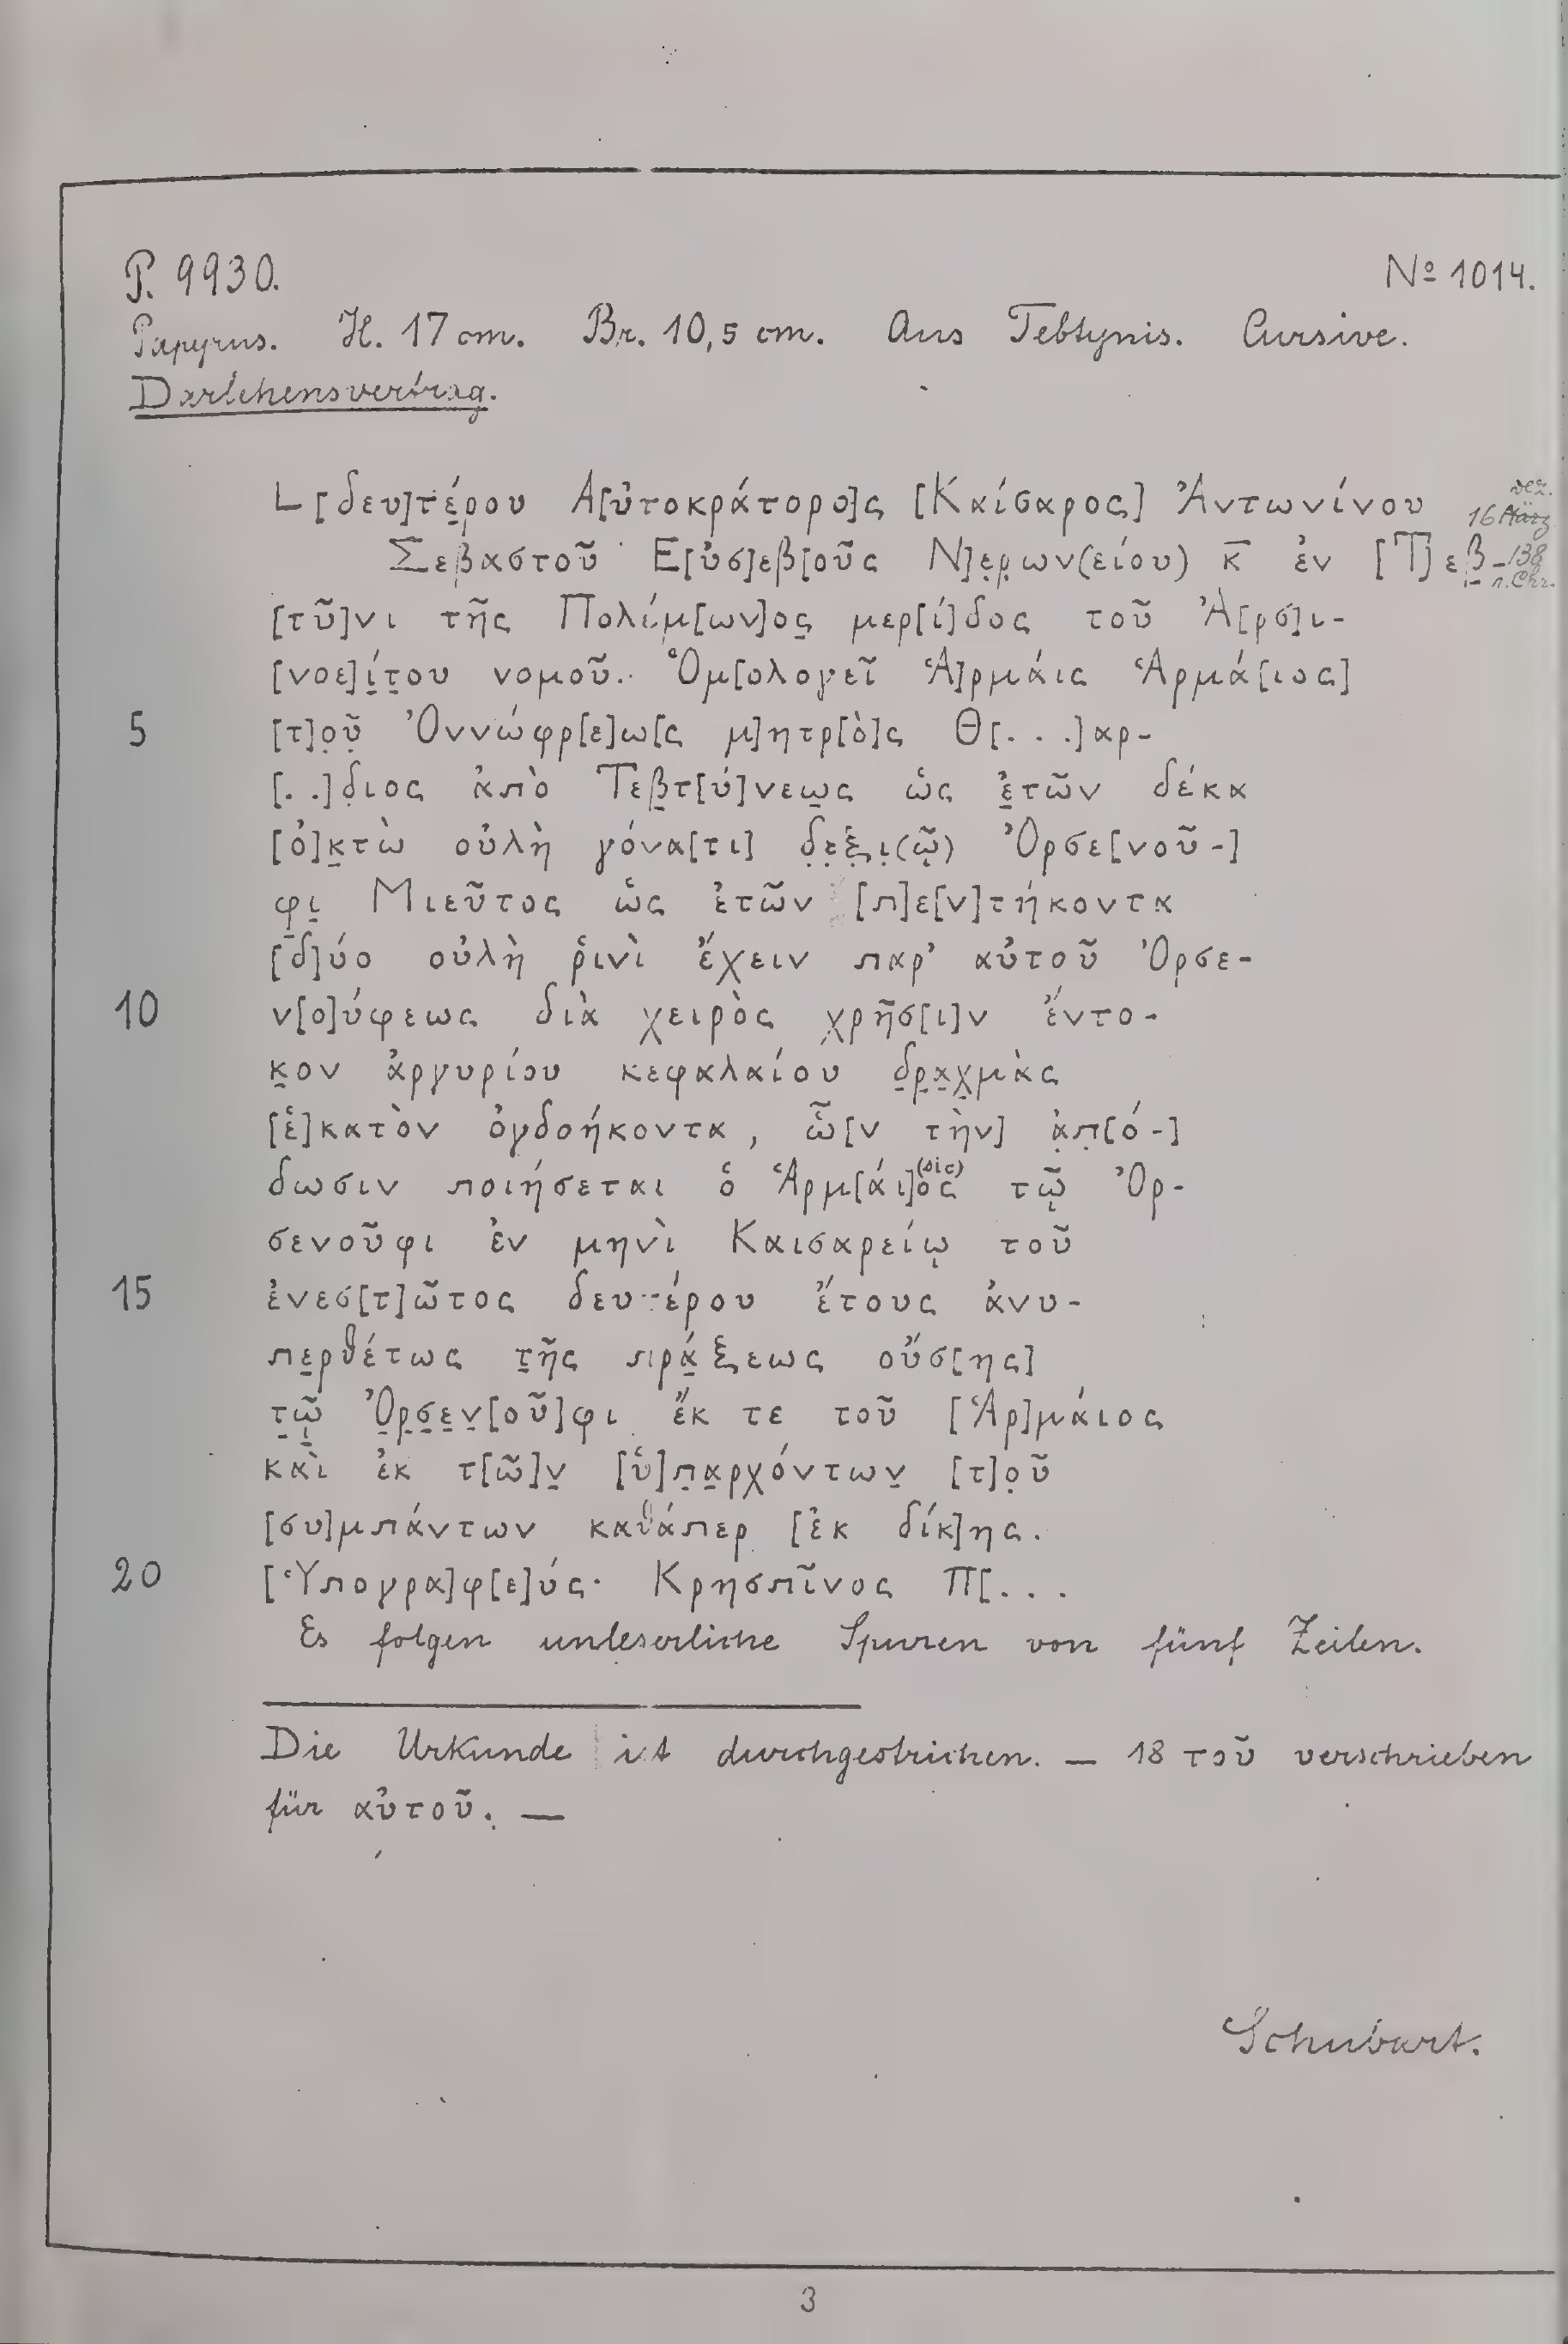 P. 9930. Nº 1014.
Papyrus. H. 17 cm. Br. 10,5 cm. Aus Tebtynis. Cursive.
Darlehensvertrag.
L [δευ]τέ̣ρου Α[ὐτοκράτορο]ς [Καίσαρος] Ἀντωνίνου
Σεβαστοῦ Ε[ὐσ]εβ[οῦς Ν]ε̣ρ̣ων(είου) κ̅ ἐν [Τ]εβ̣-
dez.
16 März
138
n. Chr.
[τῦ]νι τῆς Πολέμ[ων]ος̣ μερ[ί]δος τοῦ Ἀ[ρσ]ι-
[νοε]ί̣τ̣ου νομοῦ. Ὁμ[ολογεῖ Ἁ]ρμάις Ἁρμά[ιος]
5 [τ]ο̣ῦ̣ Ὀννώφρ[ε]ω[ς μ]ητρ[ὸ]ς Θ[. . .]αρ-
[. .]δ̣ιος ἀπὸ Τεβ̣τ[ύ]νεω̣ς ὡς ἐ̣τῶν δέκα
[ὀ]κ̣τὼ οὐλὴ γόνα[τι] δ̣ε̣ξ̣ι̣(ῷ) Ὀρσε[νοῦ-]
φι̣ Μιεῦτος ὡς ἐτῶν [π]ε[ν]τήκοντα
[δ]ύο οὐλὴ ῥινὶ ἔχειν παρ’ αὐτοῦ Ὀρσε-
10 ν[ο]ύφεως διὰ χειρὸς χρῆσ[ι]ν ἔντο-
κ̣ον ἀργυρίου κεφαλαίου δ̣ρ̣α̣χ̣μὰς
[ἑ]κατὸν ὀγδοήκοντα, ὧ[ν τὴν] ἀ̣π̣[ό-]
δωσιν ποιήσεται ὁ Ἁρμ[άι]ος (sic) τῷ Ὀρ-
σενοῦφι ἐν μηνὶ Καισαρείῳ τοῦ
15 ἐνεσ[τ]ῶτος δευτέρου ἔτους ἀνυ-
πε̣ρθέτως τ̣ῆς πρά̣ξεως οὔσ[ης]
τ̣ῷ̣ Ὀ̣ρ̣σ̣ε̣ν̣[οῦ]φι ἔκ τε τοῦ [Ἁρ]μάιος
καὶ ἐκ τ[ῶ]ν̣ [ὑ]π̣α̣ρχόντων̣ [τ]ο̣ῦ
[συ]μπάντων καθάπερ [ἐκ δίκ]ης.
20 [Ὑπογρα]φ[ε]ύς· Κρησπῖνος Π[. . .
Es folgen unleserliche Spuren von fünf Zeilen.
Die Urkunde ist durchgestrichen. — 18 τοῦ verschrieben
für αὐτοῦ. —
Schubart.
3